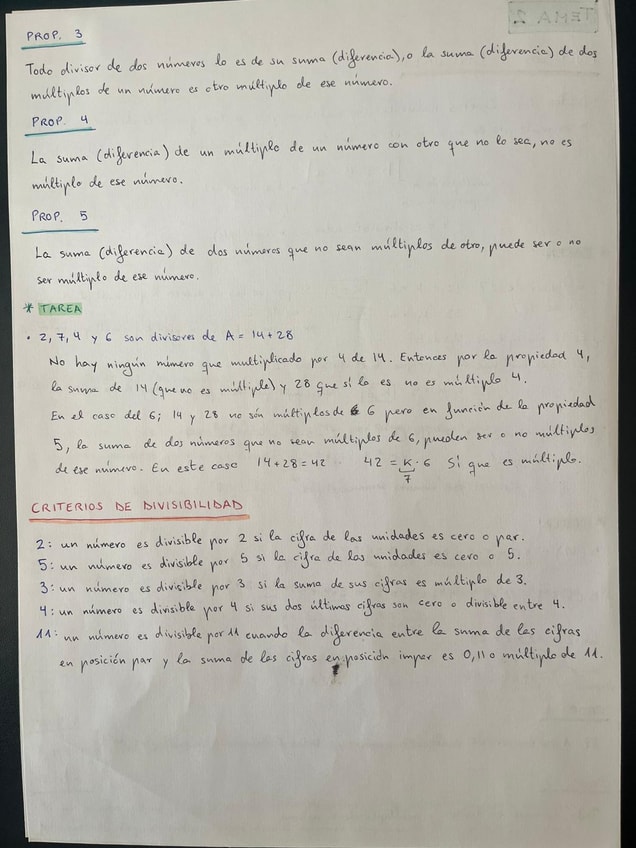 TEMA 2
PROP. 3
Todo divisor de dos números lo es de su suma (diferencia), o la suma (diferencia) de dos
múltiplos de un número es otro múltiplo de ese número.
PROP. 4
La suma (diferencia) de un múltiplo de un número con otro que no lo sea, no es
múltiplo de ese número.
PROP. 5
La suma (diferencia) de dos números que no sean múltiplos de otro, puede ser o no
ser múltiplo de ese número.
* TAREA
• 2, 7, 4 y 6 son divisores de A = 14 + 28
No hay ningún número que multiplicado por 4 de 14. Entonces por la propiedad 4,
la suma de 14 (que no es múltiple) y 28 que sí lo es no es múltiplo 4.
En el caso del 6; 14 y 28 no són múltiplos de 6 pero en función de la propiedad
5, la suma de dos números que no sean múltiplos de 6, pueden ser o no múltiplos
de ese número. En este caso 14 + 28 = 42 42 = K · 6 Sí que es múltiplo.
7
CRITERIOS DE DIVISIBILIDAD
2: un número es divisible por 2 si la cifra de las unidades es cero o par.
5: un número es divisible por 5 si la cifra de las unidades es cero o 5.
3: un número es divisible por 3 si la suma de sus cifras es múltiplo de 3.
4: un número es divisible por 4 si sus dos últimas cifras son cero o divisible entre 4.
11: un número es divisible por 11 cuando la diferencia entre la suma de las cifras
en posición par y la suma de las cifras en posición impar es 0, 11 o múltiplo de 11.